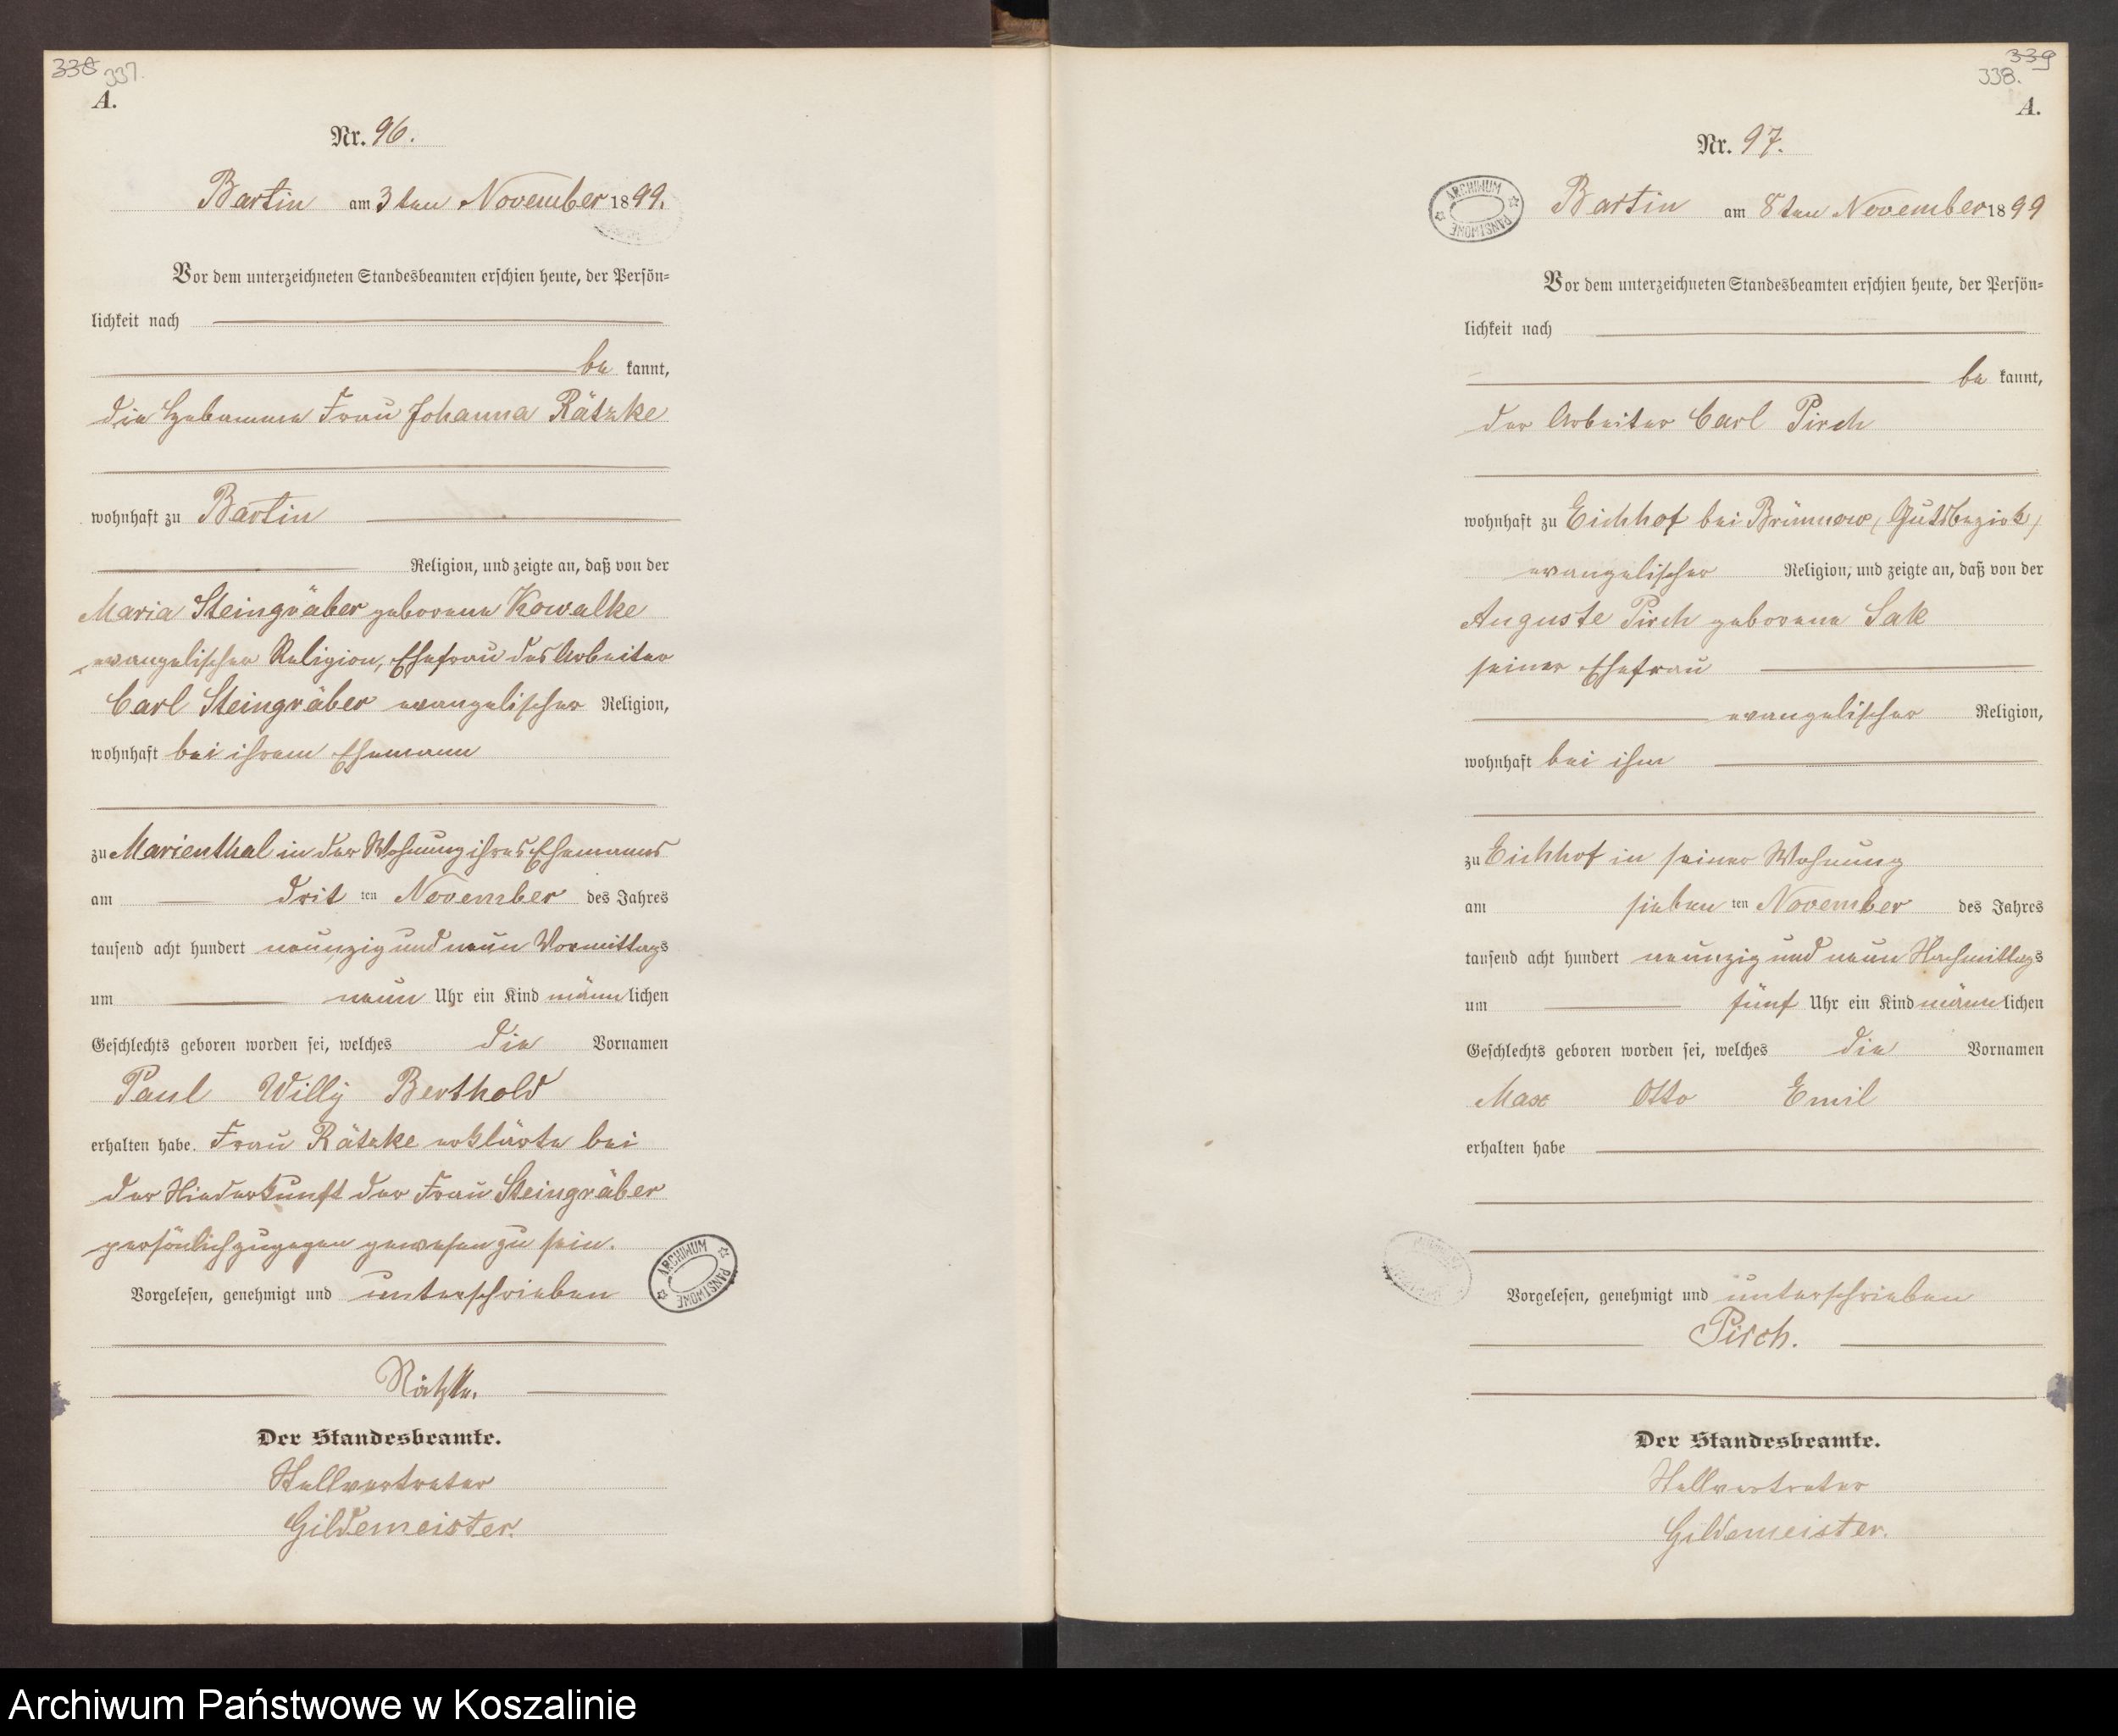 338 337.
A.
Nr. 96.
Bartin am 3ten November 1899.
Vor dem unterzeichneten Standesbeamten erschien heute, der Persön=
lichkeit nach
be kannt,
die Hebamme Frau Johanna Rätzke
wohnhaft zu Bartin
Religion, und zeigte an, daß von der
Maria Steingräber geborene Kowalke
evangelischer Religion, Ehefrau des Arbeiter
Carl Steingräber evangelischer Religion,
wohnhaft bei ihrem Ehemann
zu Marienthal in der Wohnung ihres Ehemanns
am drit ten November des Jahres
tausend acht hundert neunzig und neun Vormittags
um neun Uhr ein Kind männ lichen
Geschlechts geboren worden sei, welches die Vornamen
Paul Willy Berthold
erhalten habe. Frau Rätzke erklärte bei
der Niederkunft der Frau Steingräber
persönlich zugegen gewesen zu sein.
Vorgelesen, genehmigt und unterschrieben
Rätzke.
Der Standesbeamte.
Stellvertreter
Gildemeister.
ARCHIWUM PAŃSTWOWE
339
338.
A.
Nr. 97.
ARCHIWUM PAŃSTWOWE
Bartin am 8ten November 1899
Vor dem unterzeichneten Standesbeamten erschien heute, der Persön=
lichkeit nach
be kannt,
der Arbeiter Carl Pirch
wohnhaft zu Eichhof bei Brünnow (Gutsbezirk)
evangelischer Religion, und zeigte an, daß von der
Auguste Pirch geborene Sak
seiner Ehefrau
evangelischer Religion,
wohnhaft bei ihm
zu Eichhof in seiner Wohnung
am sieben ten November des Jahres
tausend acht hundert neunzig und neun Nachmittags
um fünf Uhr ein Kind männ lichen
Geschlechts geboren worden sei, welches die Vornamen
Max Otto Emil
erhalten habe
Vorgelesen, genehmigt und unterschrieben
Pirch.
Der Standesbeamte.
Stellvertreter
Gildemeister.
Archiwum Państwowe w Koszalinie